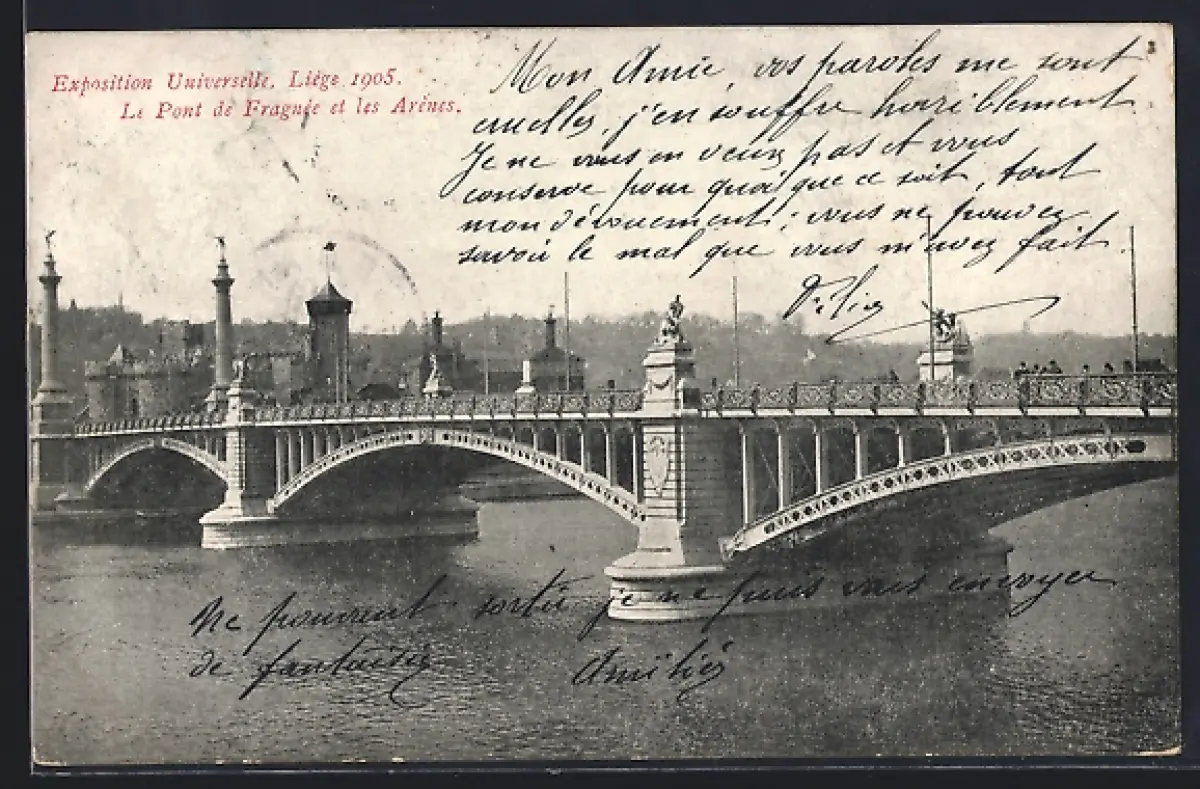 Exposition Universelle. Liége 1905.
Le Pont de Fragnée et les Arènes.
Mon Amie, vos paroles me sont
cruelles, j'en souffre horriblement
Je ne vous en veux pas et vous
conserve pour quoi que ce soit, tout
mon dévouement; vous ne pouvez
savoir le mal que vous m'avez fait.
Ne pouvant sortir je ne puis vous envoyer
de fantaisie